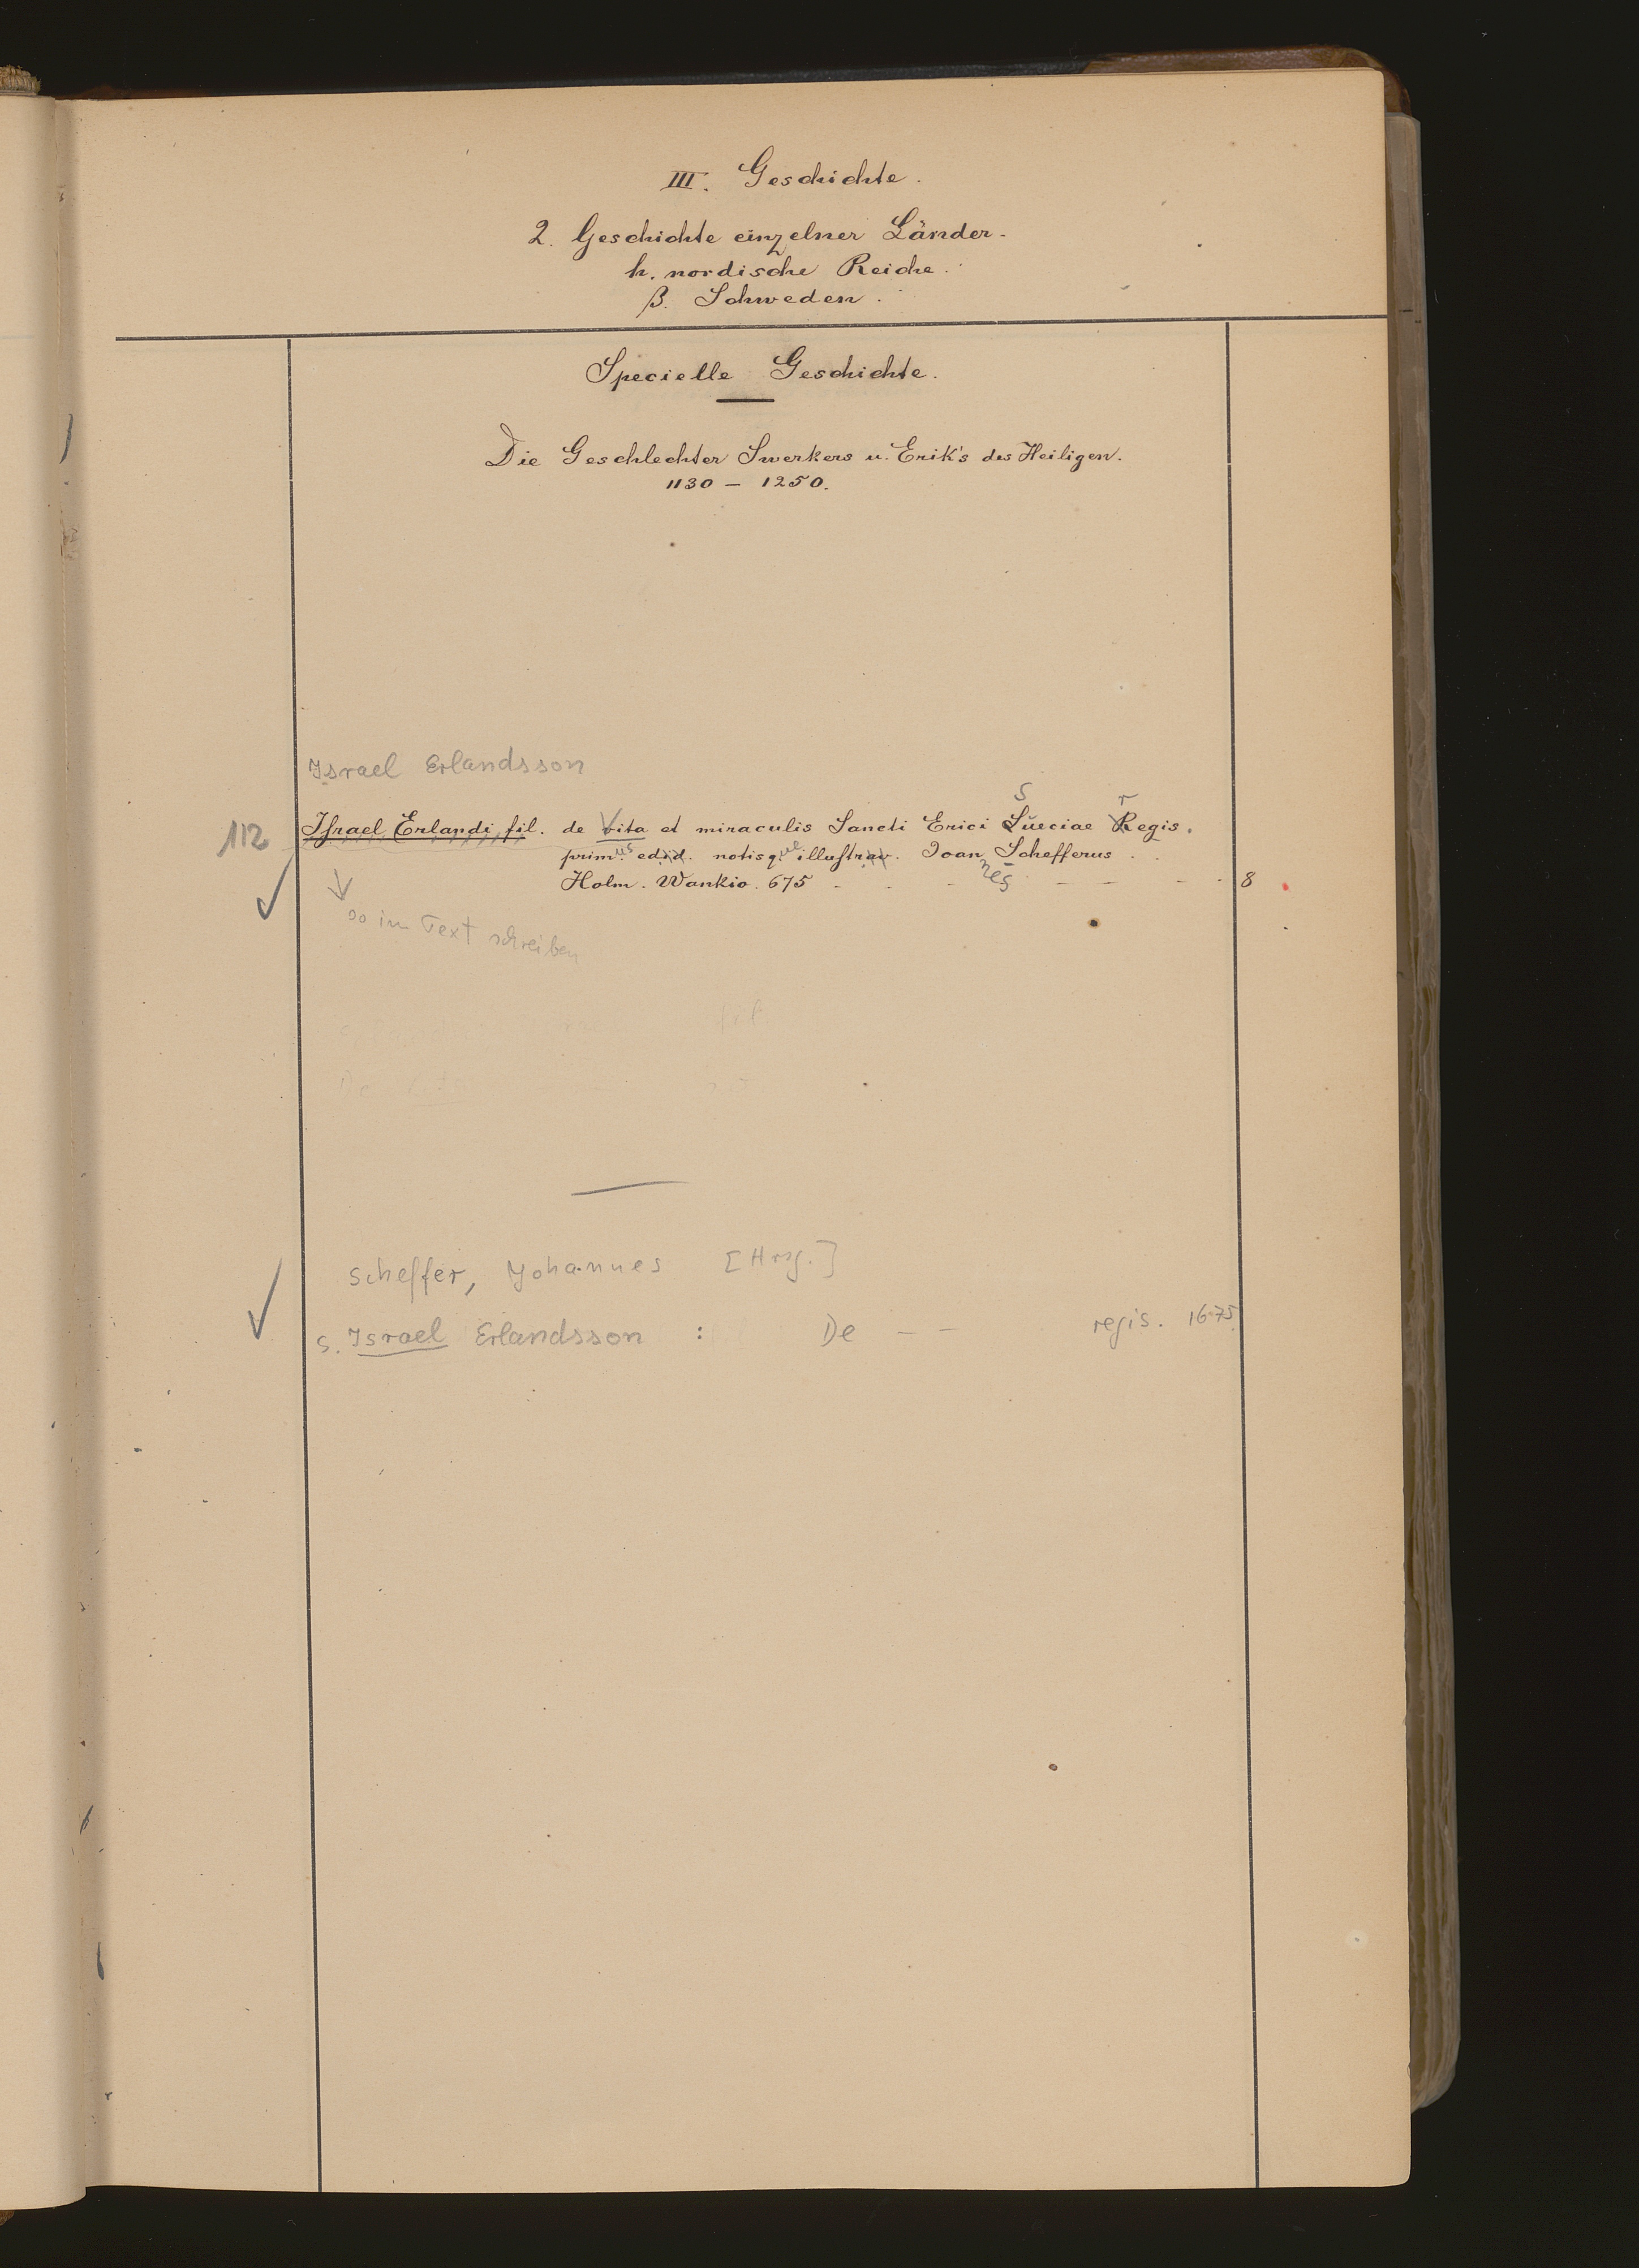 III. Geschichte.
2. Geschichte einzelner Länder.
h. nordische Reiche.
β. Schweden.
Specielle Geschichte.
Die Geschlechter Swerkers u. Erik's des Heiligen.
1130 – 1250.
Israel Erlandsson
112 Iſrael Erlandi fil. de Vita et miraculis Sancti Erici Sueciae Regis.
primus edid. notisque illuſtrav. Joannes Schefferus.
Holm. Wankio. 675 - - - - - - - 8
so im Text schreiben
fil.
De
Scheffer, Johannes [Hrsg.]
s. Israel Erlandsson : De - - regis. 1675